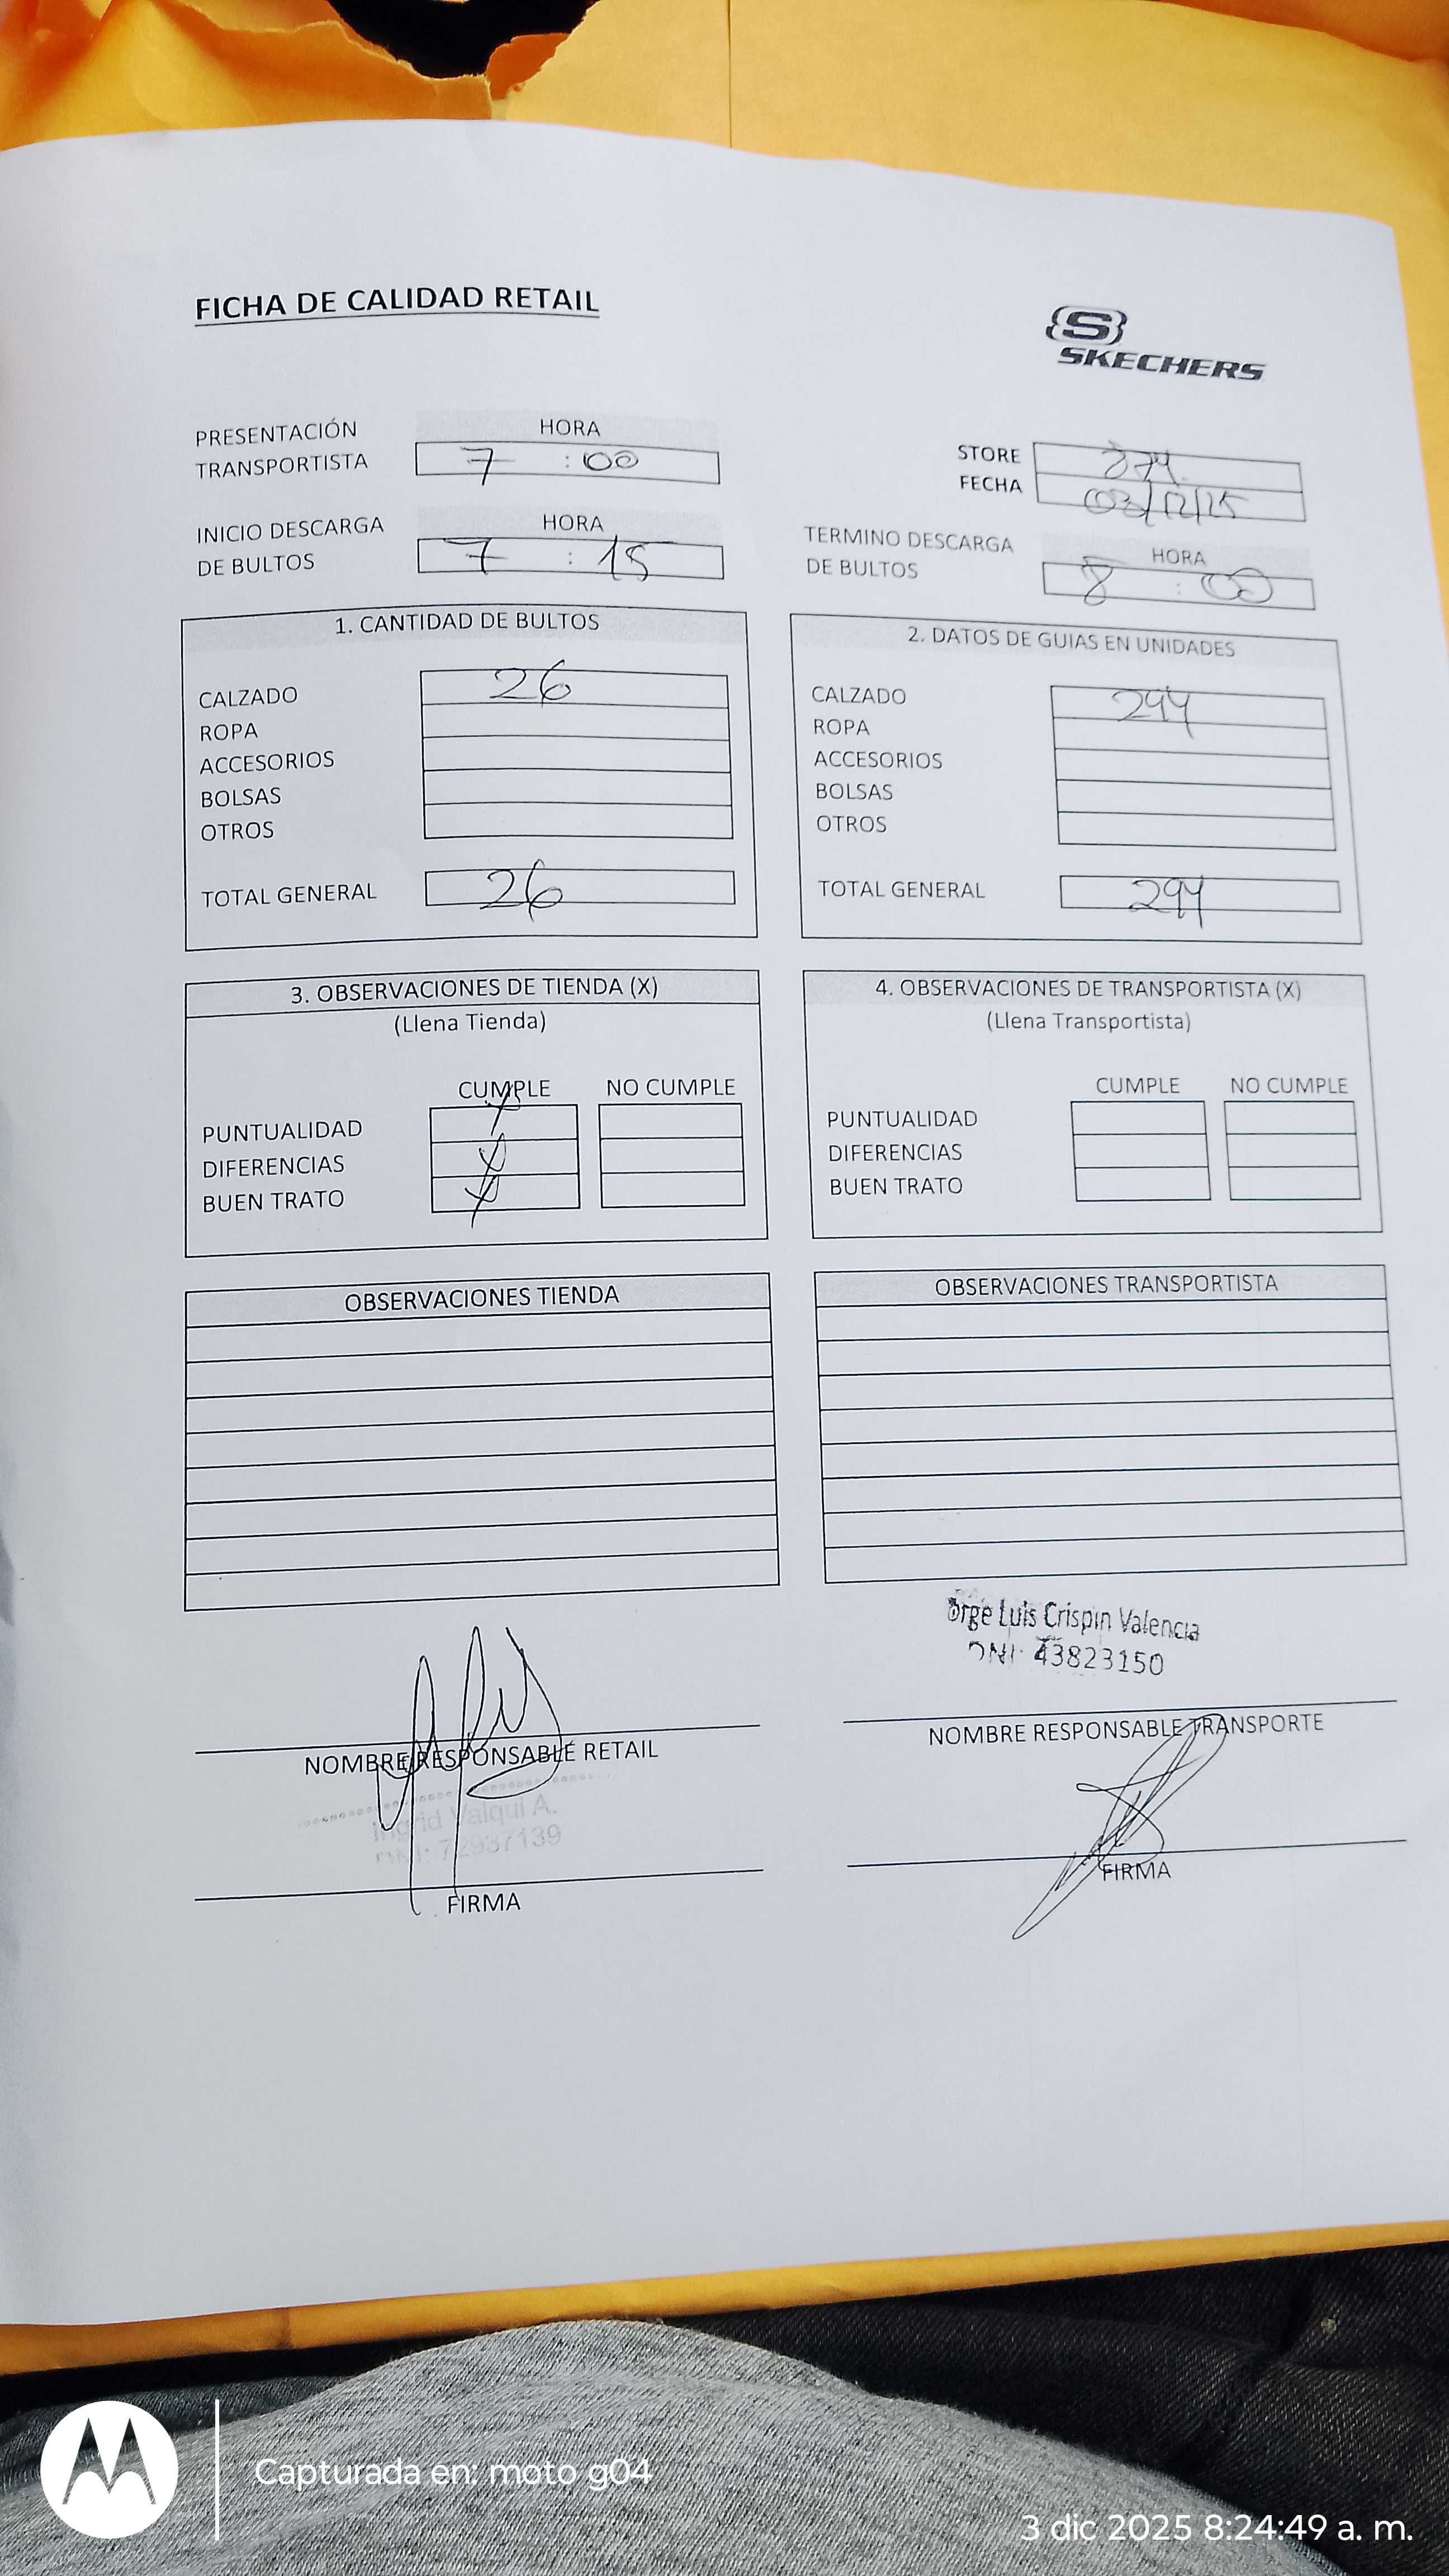 FICHA DE CALIDAD RETAIL
SKECHERS
PRESENTACIÓN TRANSPORTISTA HORA 7 : 00
STORE 374
FECHA 03/12/25
INICIO DESCARGA DE BULTOS HORA 7 : 15
TERMINO DESCARGA DE BULTOS HORA 8 : 00
1. CANTIDAD DE BULTOS
CALZADO 26
ROPA
ACCESORIOS
BOLSAS
OTROS
TOTAL GENERAL 26
2. DATOS DE GUIAS EN UNIDADES
CALZADO 294
ROPA
ACCESORIOS
BOLSAS
OTROS
TOTAL GENERAL 294
3. OBSERVACIONES DE TIENDA (X)
(Llena Tienda)
CUMPLE NO CUMPLE
PUNTUALIDAD X
DIFERENCIAS X
BUEN TRATO X
4. OBSERVACIONES DE TRANSPORTISTA (X)
(Llena Transportista)
CUMPLE NO CUMPLE
PUNTUALIDAD
DIFERENCIAS
BUEN TRATO
OBSERVACIONES TIENDA
OBSERVACIONES TRANSPORTISTA
NOMBRE RESPONSABLE RETAIL
Ingrid Valqui A.
DNI: 72937139
FIRMA
orge Luis Crispin Valencia
DNI: 43823150
NOMBRE RESPONSABLE TRANSPORTE
FIRMA
Capturada en: moto g04
3 dic 2025 8:24:49 a. m.